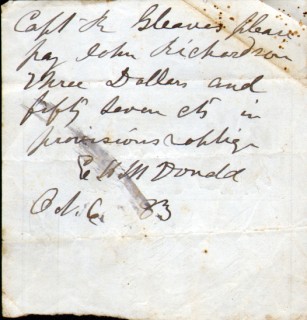 Capt R Gleaves please
pay John Richardson
Three Dollars and
fifty seven cts in
provisions & oblige
E H McDonald
Oct. 6. 83